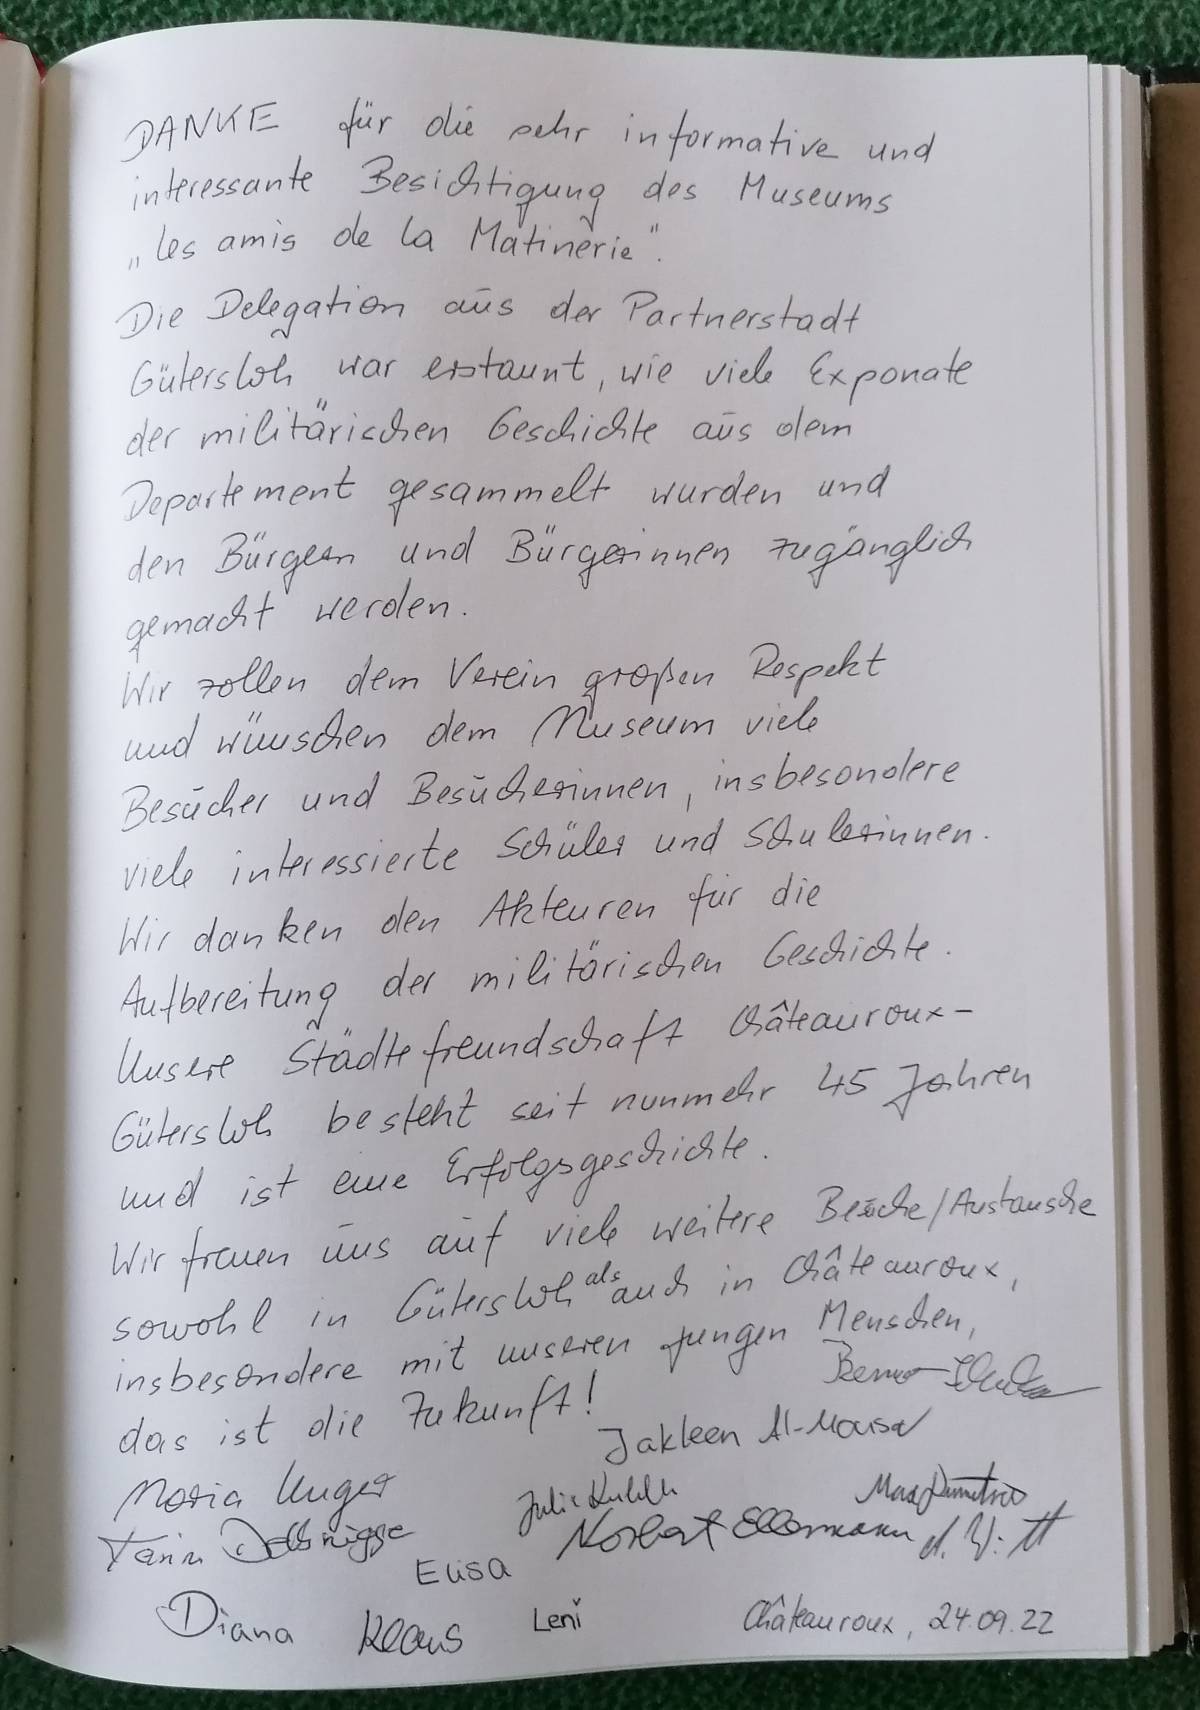 DANKE für die sehr informative und
interessante Besichtigung des Museums
„les amis de la Matinerie“.
Die Delegation aus der Partnerstadt
Gütersloh war erstaunt, wie viele Exponate
der militärischen Geschichte aus dem
Departement gesammelt wurden und
den Bürgern und Bürgerinnen zugänglich
gemacht werden.
Wir zollen dem Verein großen Respekt
und wünschen dem Museum viele
Besucher und Besucherinnen, insbesondere
viele interessierte Schüler und Schulerinnen.
Wir danken den Akteuren für die
Aufbereitung der militärischen Geschichte.
Unsere Städtefreundschaft Châteauroux-
Gütersloh besteht seit nunmehr 45 Jahren
und ist eine Erfolgsgeschichte.
Wir freuen uns auf viele weitere Besuche/Austausche
sowohl in Gütersloh als auch in Châteauroux,
insbesondere mit unseren jungen Menschen,
das ist die Zukunft!
Jakleen Al-Mousa
Maria Unger
Norbert Ellermann
Elisa
Diana Klaus Leni
Châteauroux, 24.09.22